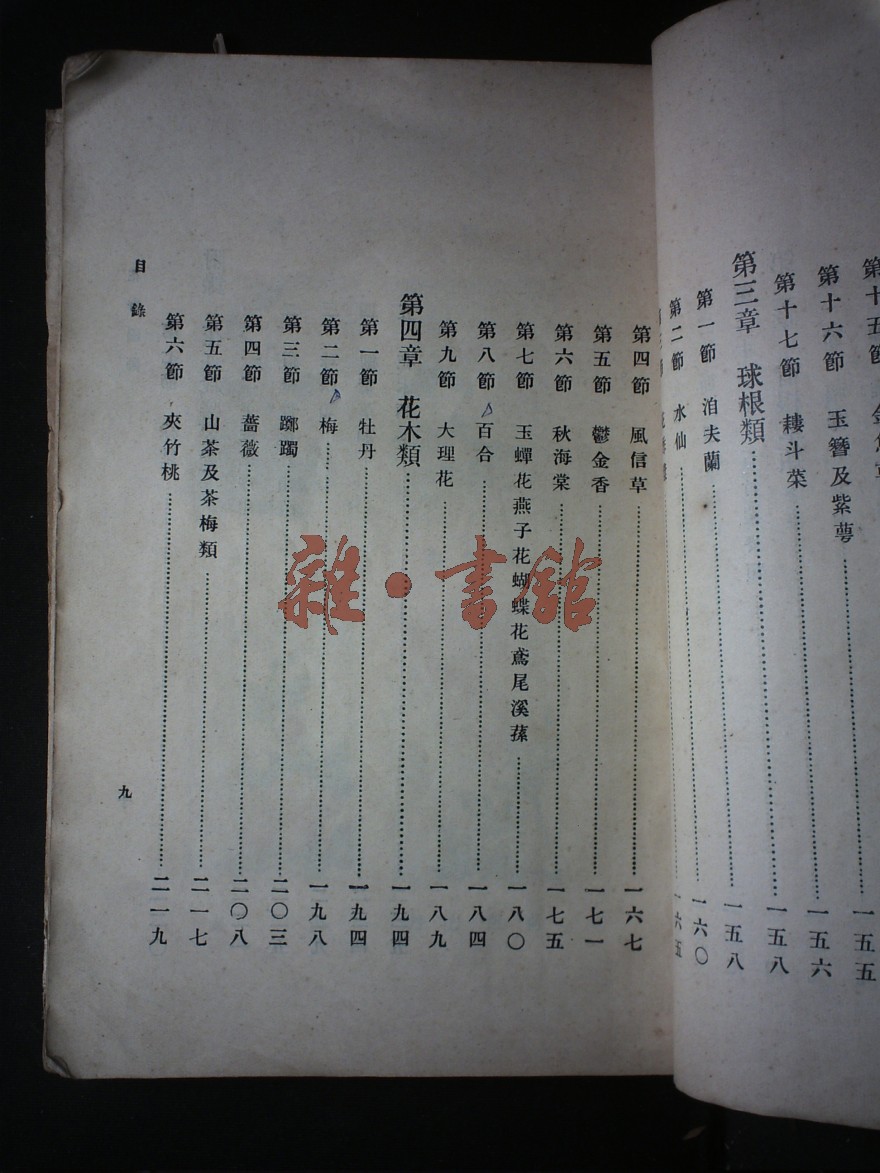 第十五節 一五五
第十六節 玉簪及紫萼 一五六
第十七節 耬斗菜 一五八
第三章 球根類 一五八
第一節 泊夫蘭 一六〇
第二節 水仙 一六五
第四節 風信草 一六七
第五節 鬱金香 一七一
第六節 秋海棠 一七五
第七節 玉蟬花燕子花蝴蝶花鳶尾溪蓀 一八〇
第八節 百合 一八四
第九節 大理花 一八九
第四章 花木類 一九四
第一節 牡丹 一九四
第二節 梅 一九八
第三節 躑躅 二〇三
第四節 薔薇 二〇八
第五節 山茶及茶梅類 二一七
第六節 夾竹桃 二一九
目錄
九
雜·書館